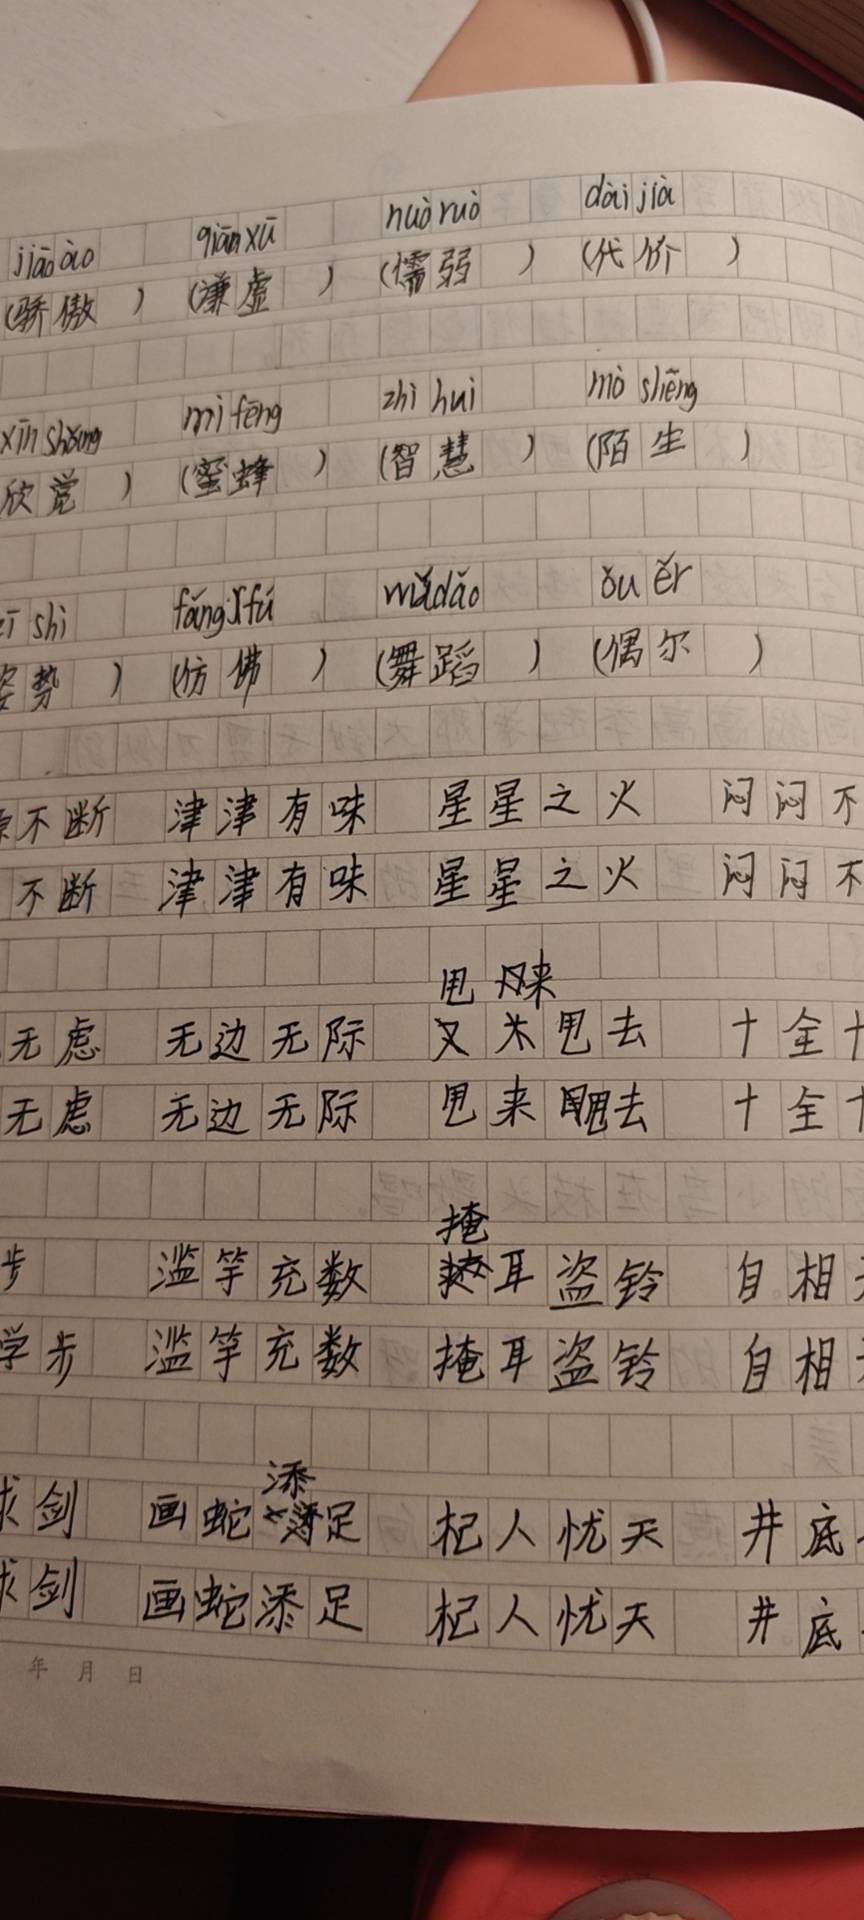 jiāo ào qiān xū nuò ruò dài jià
(骄傲 ) (谦虚 ) (懦弱 ) (代价 )
xīn shǎng mì fēng zhì huì mò shēng
欣赏 ) (蜜蜂 ) (智慧 ) (陌生 )
shì fǎng fú dǎo ǒu ěr
姿势 ) (仿佛 ) (舞蹈 ) (偶尔 )
不断 津津有味 星星之火 闷闷不
不断 津津有味 星星之火 闷闷不
甩 来
无虑 无边无际 甩去 十全十
无虑 无边无际 甩来甩去 十全十
掩
步 滥竽充数 耳盗铃 自相
学步 滥竽充数 掩耳盗铃 自相
添
求剑 画蛇 足 杞人忧天 井底
求剑 画蛇添足 杞人忧天 井底
年 月 日